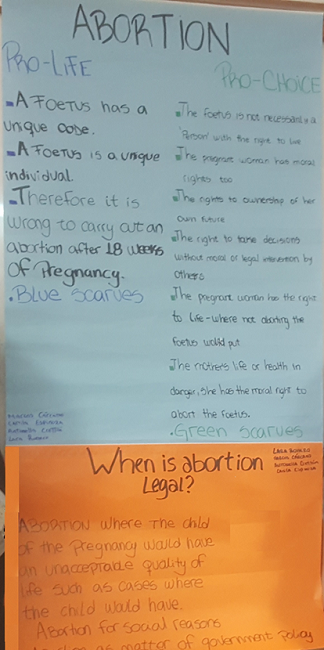 ABORTION
PRO-LIFE
A FOETUS has a
unique code.
A FOETUS is a unique
individual.
Therefore it is
wrong to carry out an
abortion after 18 weeks
OF Pregnancy.
Blue scarves
PRO-CHOICE
The foetus is not necessarily a
'Person' with the right to live
The pregnant woman has moral
rights too
The rights to ownership of her
own future
The right to take decisions
without moral or legal intervention by
others
The pregnant woman has the right
to life-where not aborting the
foetus would put
The mothers life or health in
danger, she has the moral right to
abort the foetus.
Green scarves
When is abortion
Legal?
ABORTION where The child
of the Pregnancy would have
an unacceptable quality of
life such as cases where
the child would have.
Abortion for social reasons
as matter of government policy